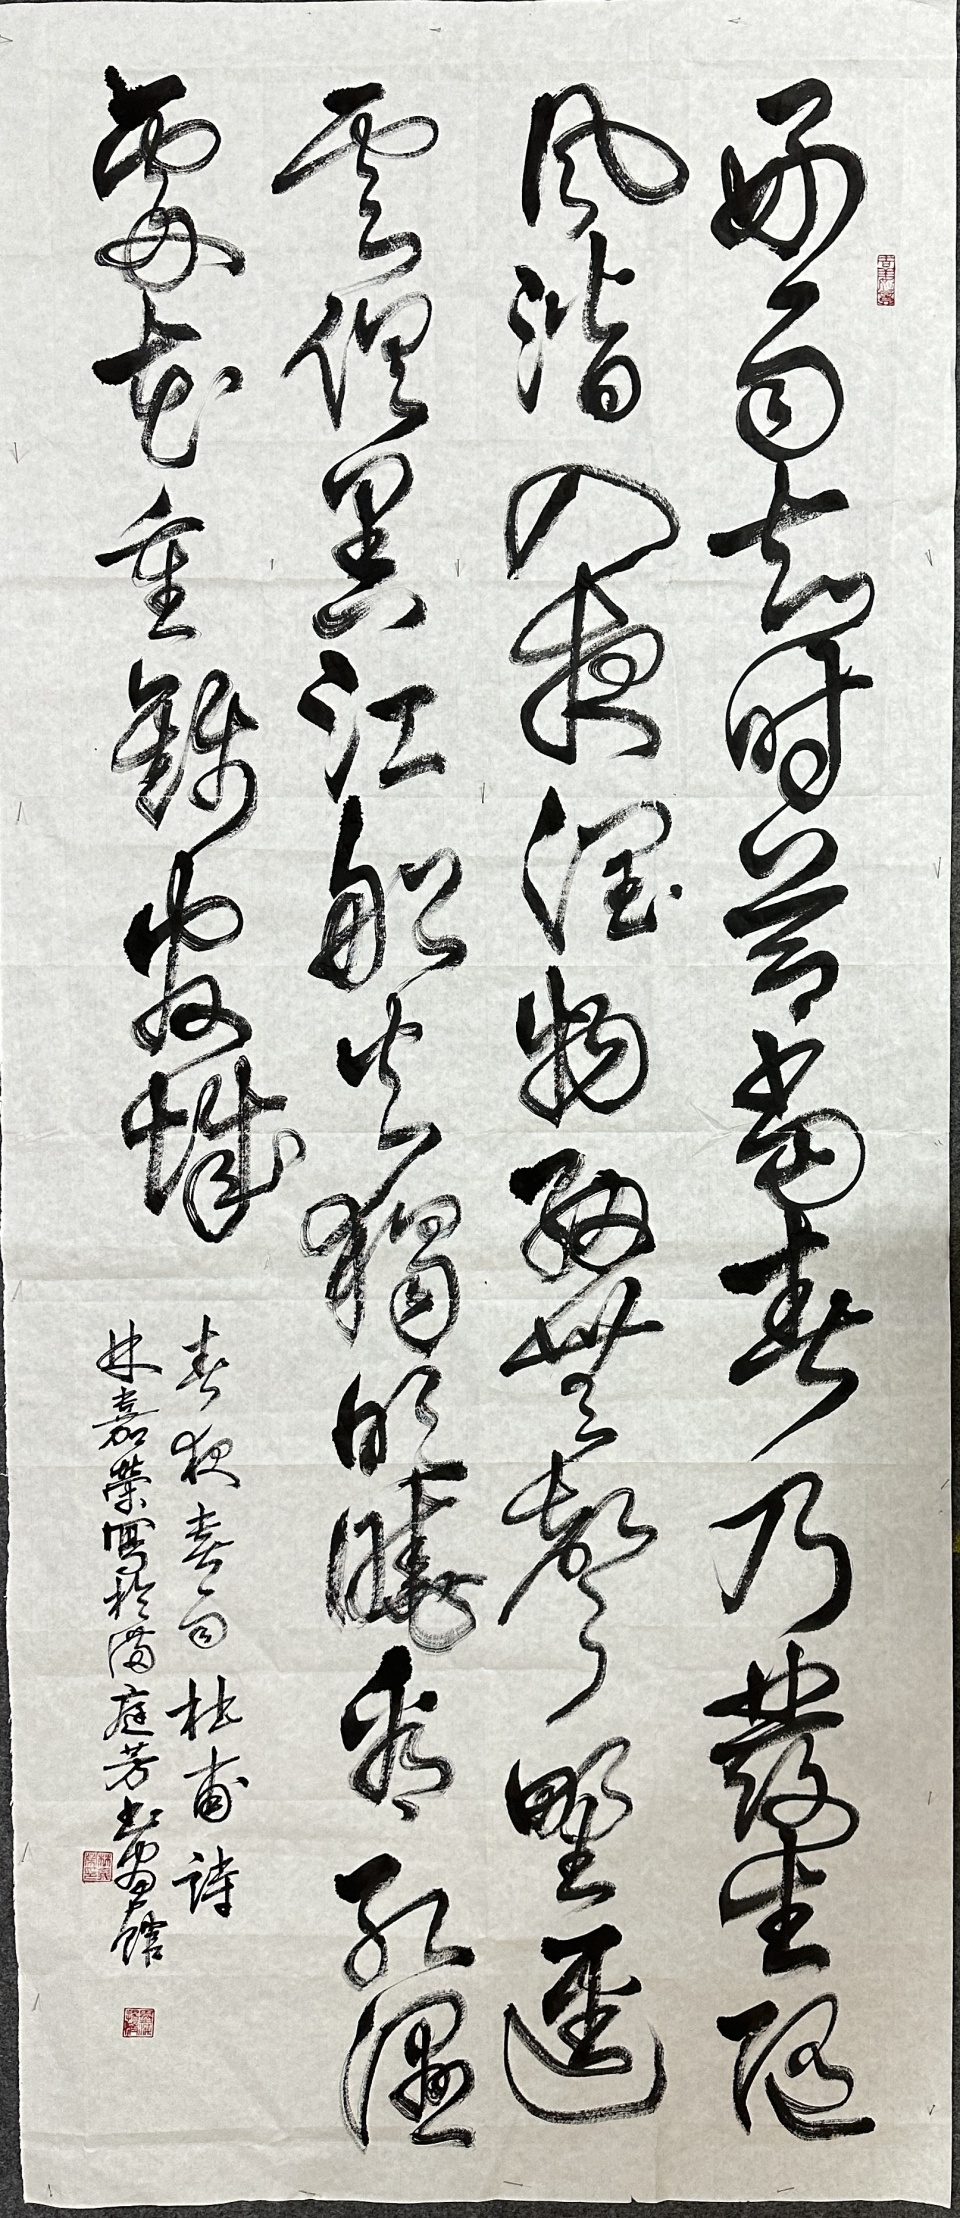 好雨知時節當春乃發生隨
風潛入夜潤物細無聲野逕
雲俱黑江船火獨明曉看紅濕
處花重錦官城
春夜喜雨杜甫詩
林嘉榮寫於滿庭芳書畫館